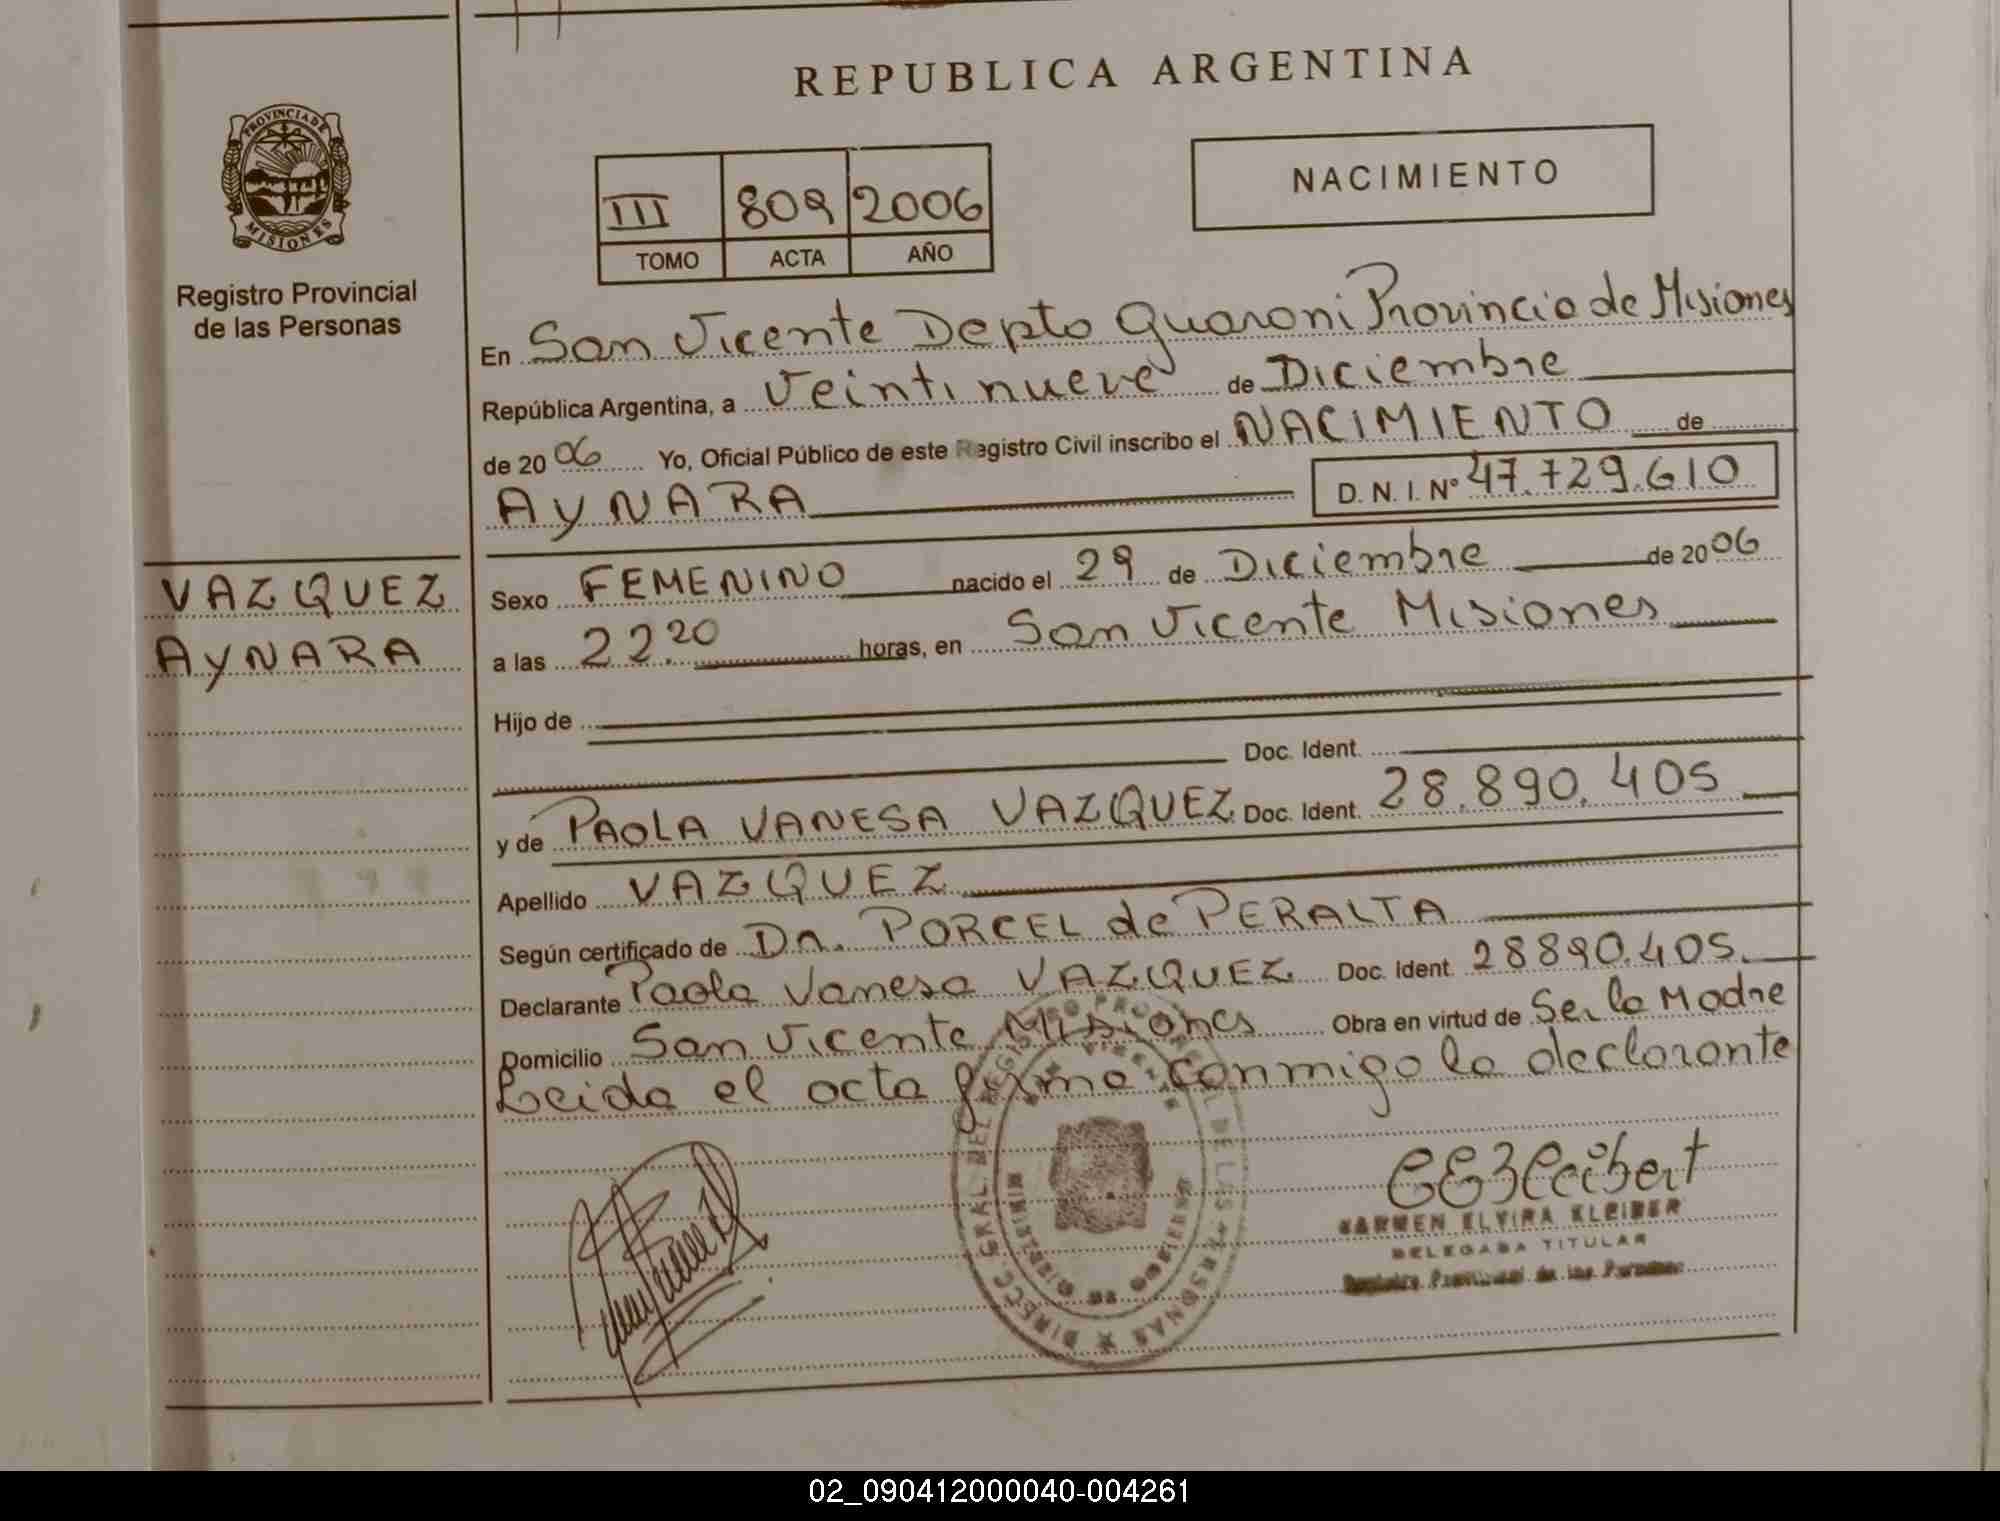 REPUBLICA ARGENTINA
PROVINCIA DE
MISIONES
Registro Provincial
de las Personas
NACIMIENTO
III 809 2006
TOMO ACTA AÑO
En San Vicente Depto Guarani Provincia de Misiones
República Argentina, a Veintinueve de Diciembre
de 2006 Yo, Oficial Público de este Registro Civil inscribo el NACIMIENTO de
AYNARA D.N.I. Nº 47.729.610
VAZQUEZ
AYNARA
Sexo FEMENINO nacido el 29 de Diciembre de 2006
a las 22.20 horas, en San Vicente Misiones
Hijo de
Doc. Ident.
y de PAOLA VANESA VAZQUEZ Doc. Ident. 28.890.405
Apellido VAZQUEZ
Según certificado de Dr. PORCEL de PERALTA
Declarante Paola Vanesa VAZQUEZ Doc. Ident. 28890.405
Domicilio San Vicente Misiones Obra en virtud de Ser la Madre
Leida el acta firma conmigo la declarante
KARMEN ELVIRA KLEIBER
DELEGADA TITULAR
Registro Provincial de las Personas
DIREC. GRAL. DEL REGISTRO PROVINCIAL DE LAS PERSONAS
02_090412000040-004261